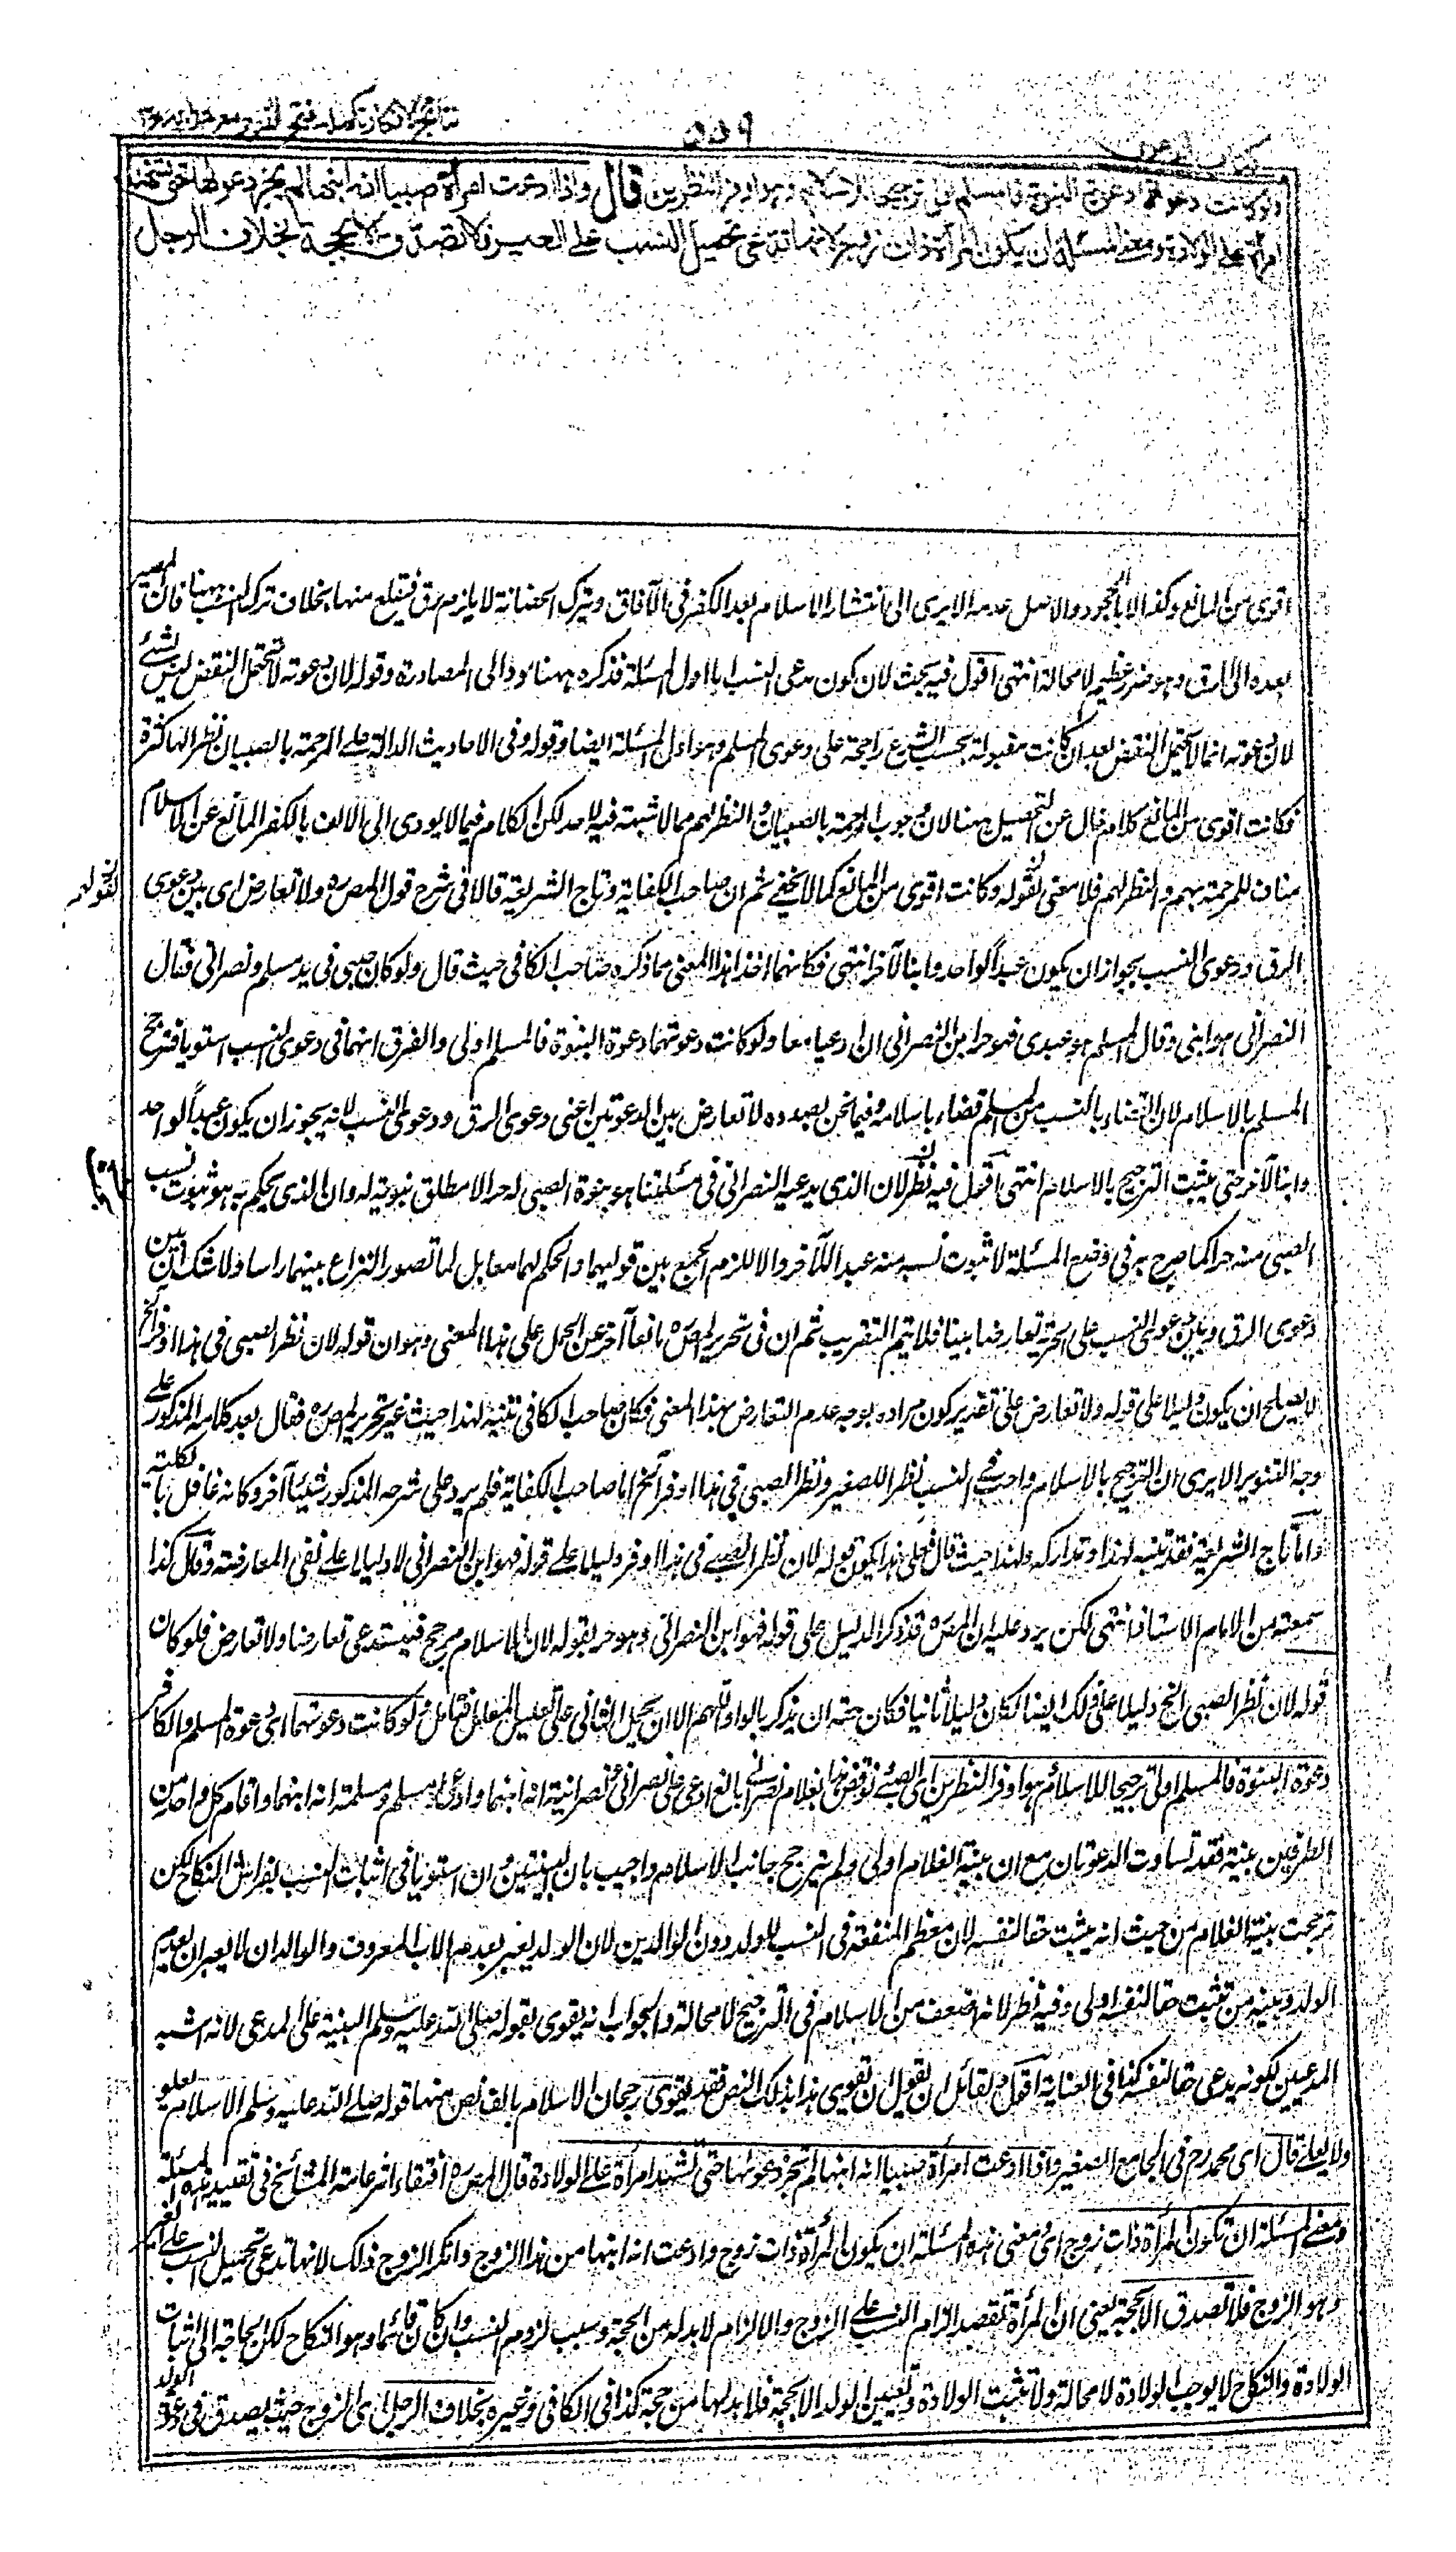 كتاب الدعوى
٥٥٩
نتائج الافكار تكملة فتح القدير مع هداية
ولو كانت دعوتهما دعوة البنوة فالمسلم اولى ترجيحا للاسلام وهو اوفر النظرين قال واذا ادعت امرأة صبيا انه ابنها لم يجز دعوتها حتى تشهد
امرأة على الولادة ومعنى المسئلة ان يكون المرأة ذات زوج لانها تدعى تحميل النسب على الغير فلا تصدق الا بحجة بخلاف الرجل
اقوى من المانع وكفر الآباء جحود والاصل عدمه الا يرى الى انتشار الاسلام بعد الكفر فى الآفاق وبترك الحضانة لا يلزم رق فيقلع منها بخلاف ترك النسب ههنا فان المصير
بعده الى الرق وهو ضرر عظيم لا محالة انتهى اقول فيه بحث لان كون مدعى النسب ابا اول المسئلة فذكره ههنا يودى الى المصادرة وقوله لان دعوته لا تحتمل النقض ليس بشئ
لان دعوته انما لا تحتمل النقض بعد ان كانت مقبولة بحسب الشرع راجحة على دعوى المسلم وهو اول المسئلة ايضا وقوله وفى الاحاديث الدالة على المرحمة بالصبيان نظرا لها كثرة
فكانت اقوى من المانع كلام خال عن التحصيل ههنا لان وجوب المرحمة بالصبيان والنظر لهم مما لا شبهة فيه لاحد لكن الكلام فيما لا يودى الى الالف بالكفر المانع عن الاسلام
مناف للمرحمة بهم والنظر لهم فلا معنى لقوله وكانت اقوى من المانع كما لا يخفى ثم ان صاحب الكفاية وتاج الشريعة قالا فى شرح قول المصره ولا تعارض اى بين دعوى
الرق ودعوى النسب بجواز ان يكون عبدا لواحد وابنا لآخر انتهى فكانهما اخذا هذا المعنى مما ذكره صاحب الكافى حيث قال ولو كان صبى فى يد مسلم ونصرانى فقال
النصرانى هو ابنى وقال المسلم هو عبدى فهو حر ابن النصرانى ان ادعيا معا ولو كانت دعوتهما دعوة البنوة فالمسلم اولى والفرق انهما فى دعوى النسب استويا فترجح
المسلم بالاسلام لان القضاء بالنسب من المسلم قضاء باسلامه وفيما نحن بصدده لا تعارض بين الدعوتين اعنى دعوى الرق ودعوى النسب لانه يجوز ان يكون عبدا لواحد
وابنا لآخر حتى يثبت الترجيح بالاسلام انتهى اقول فيه نظر لان الذى يدعيه النصرانى فى مسئلتنا هو بنوة الصبى له حرا لا مطلق بنوته له وان الذى يحكم به هو ثبوت نسب
الصبى منه حرا كما صرح به فى وضع المسئلة لا ثبوت نسبه منه عبدا للآخر والا للزم الجمع بين قوليهما والحكم لهما معا بل لما تصور النزاع بينهما راسا ولا شك ان بين
دعوى الرق وبين دعوى النسب على الحرية تعارضا بينا فلا يتم التقريب ثم ان فى تحرير المصره مانعا آخر عن الحمل على هذا المعنى وهو ان قوله لان نظر الصبى فى هذا اوفر الخ
لا يصلح ان يكون دليلا على قوله ولا تعارض على تقدير كون مراده بوجه عدم التعارض هذا المعنى فكان صاحب الكافى تنبه لهذا حيث غير تحرير المصره فقال بعد كلامه المذكور على
وجه التنوير الا يرى ان الترجيح بالاسلام واجب فى النسب نظرا للصغير ونظر الصبى فى هذا اوفر الخ اما صاحب الكفاية فلم يرد على شرحه المذكور شيئا آخر وكانه غافل بالكلية
واما تاج الشريعة فقد تنبه لهذا وتداركه ولهذا حيث قال فعلى هذا يكون قوله لان نظر الصبى فى هذا اوفر دليلا على قوله فهو ابن النصرانى لا دليلا على نفى المعارضة وقال كذا
سمعته من الامام الاستاذ انتهى لكن يرد عليه ان المصره قد ذكر الدليل على قوله فهو ابن النصرانى وهو حر بقوله لان الاسلام مرجح فيستدعى تعارضا ولا تعارض فلو كان
قوله لان نظر الصبى الخ دليلا على ذلك ايضا لكان دليلا ثانيا فكان حقه ان يذكر بالواو اللهم الا ان يحمل الثانى على تعليل المعلل فتامل ولو كانت دعوتهما اى دعوة المسلم والكافر
دعوة البنوة فالمسلم اولى ترجيحا للاسلام وهو اوفر النظرين اى للصبى نوقض هذا بغلام نصرانى بالغ ادعى على نصرانى ونصرانية انه ابنهما وادعى مسلم ومسلمة انه ابنهما واقام كل واحد من
الطرفين بينة فقد تساوت الدعوتان مع ان بينة الغلام اولى ولم يترجح جانب الاسلام واجيب بان البينتين وان استويا فى اثبات النسب بفراش النكاح لكن
ترجحت بينة الغلام من حيث انه يثبت حقا لنفسه لان معظم المنفعة فى النسب للولد دون الوالدين لان الولد يعير بعدم الاب المعروف والوالدان لا يعيران بعدم
الولد وبينة من تثبت حقا لنفسه اولى وفيه نظر لانه اضعف من الاسلام فى الترجيح لا محالة والجواب انه يقوى بقوله صلى الله عليه وسلم البينة على المدعى لانه اشبه
المدعيين لكونه يدعى حقا لنفسه كذا فى العناية اقول لقائل ان يقول ان تقوى هذا بذلك النص فقد يقوى رجحان الاسلام بالنصوص منها قوله صلى الله عليه وسلم الاسلام يعلو
ولا يعلى قال اى محمد رح فى الجامع الصغير واذا ادعت امرأة صبيا انه ابنها لم تجز دعوتها حتى تشهد امرأة على الولادة قال المصره اقتفاء اثر عامة المشائخ فى تقييد هذه المسئلة
ومعنى المسئلة ان تكون المرأة ذات زوج اى ومعنى هذه المسئلة ان يكون المرأة ذات زوج وادعت انه ابنها من هذا الزوج وانكر الزوج ذلك لانها تدعى تحميل النسب على الغير
وهو الزوج فلا تصدق الا بحجة يعنى ان المرأة تقصد الزام النسب على الزوج والالزام لا بد له من الحجة وسبب لزوم النسب وان كان قائما وهو النكاح لكن الحاجة الى اثبات
الولادة والنكاح لا يوجب الولادة لا محالة ولا تثبت الولادة وتعيين الولد الا بحجة فلا بد لها من حجة كذا فى الكافى وغيره بخلاف الرجل اى الزوج حيث يصدق فى دعوة الولد